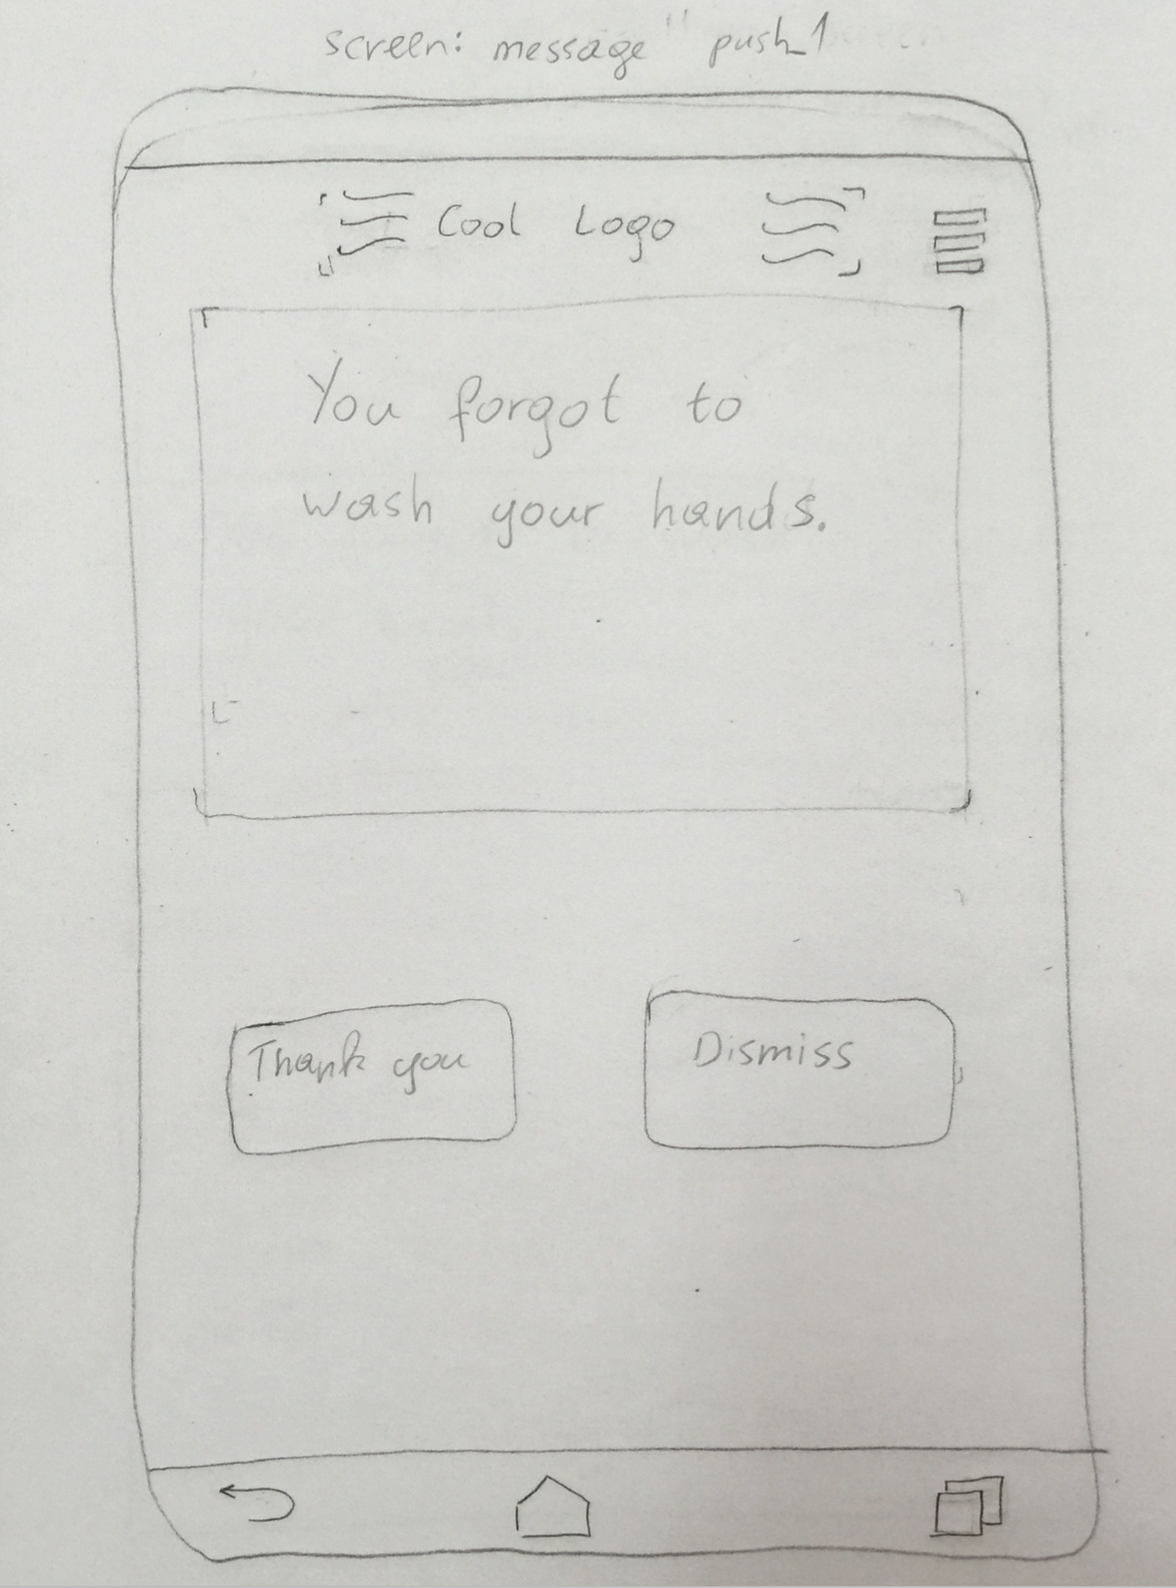 screen: message" push_1
Cool Logo
You forgot to
wash your hands.
Thank you
Dismiss